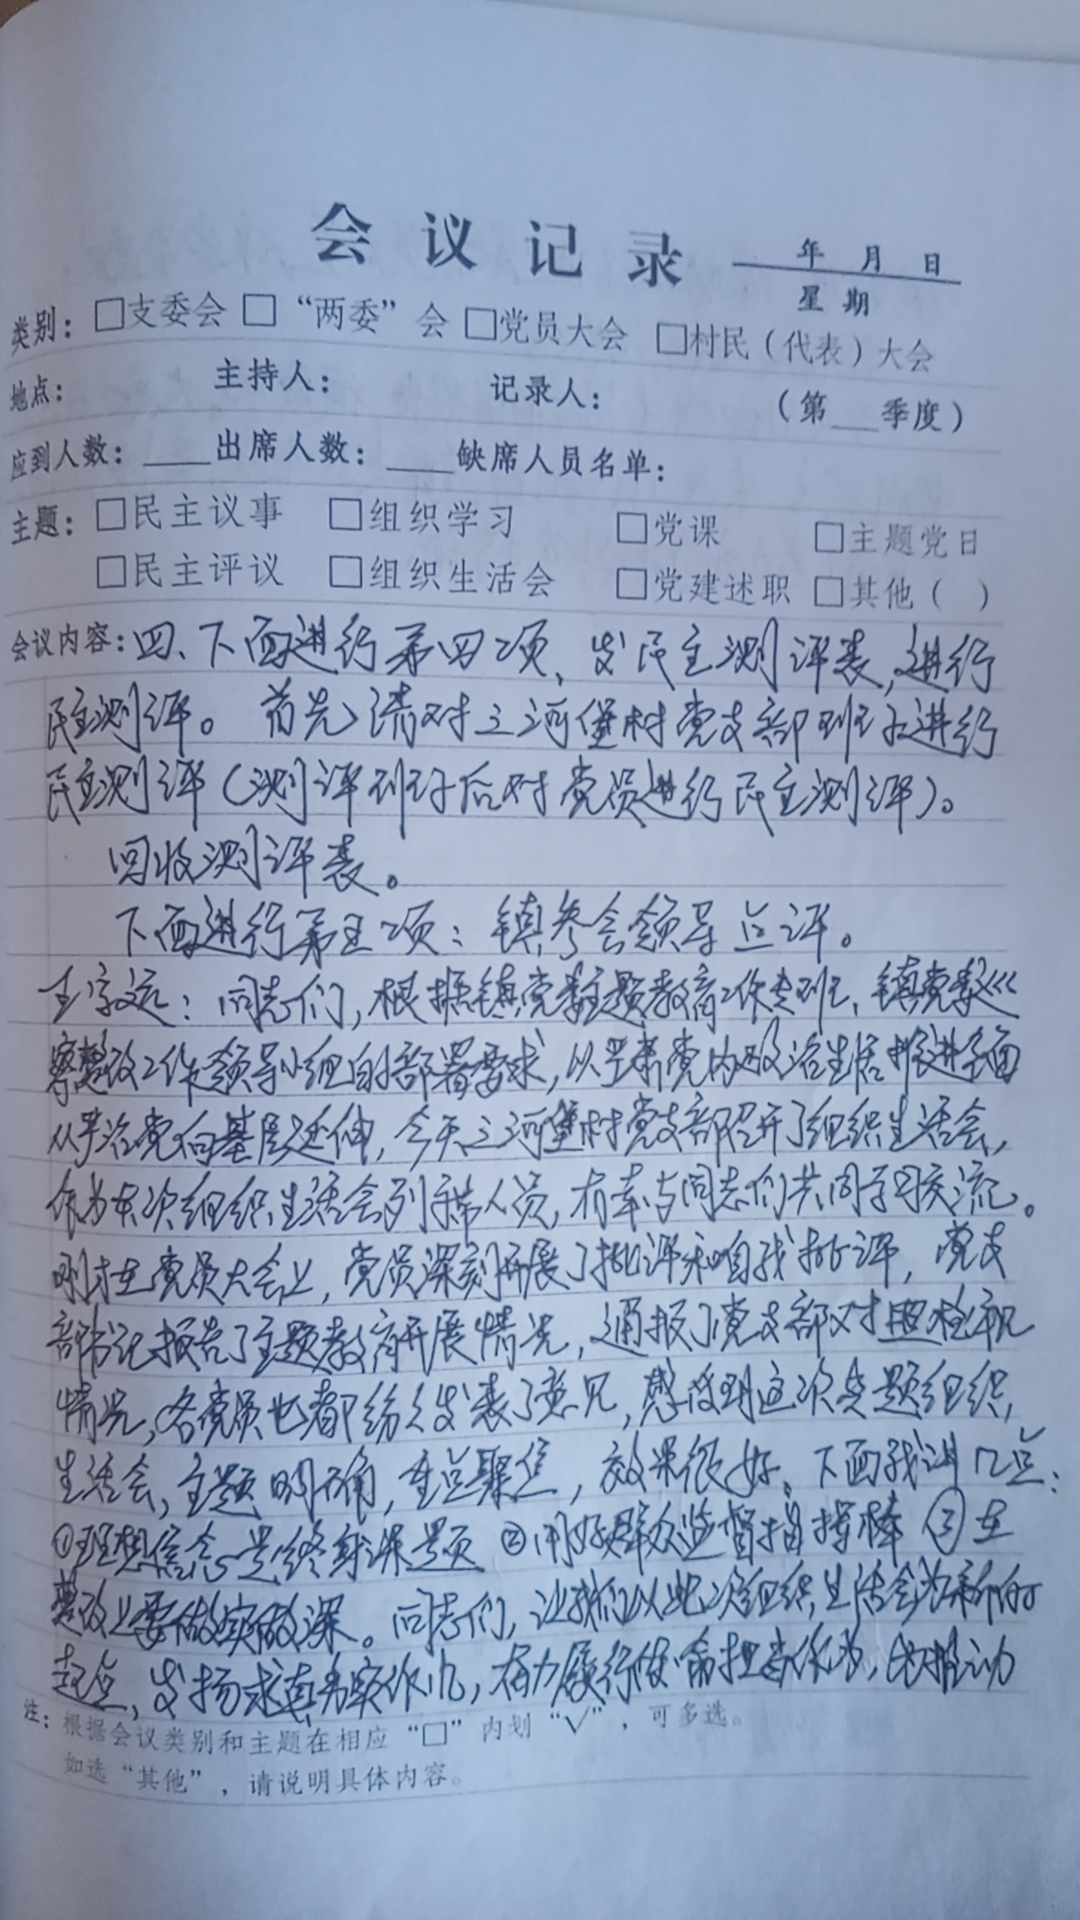 会议记录
年 月 日
星期
类别：□支委会 □“两委”会 □党员大会 □村民（代表）大会
地点： 主持人： 记录人： （第___季度）
应到人数：____出席人数：____缺席人员名单：
主题：□民主议事 □组织学习 □党课 □主题党日
□民主评议 □组织生活会 □党建述职 □其他（ ）
会议内容：四、下面进行第四项，发民主测评表，进行
民主测评。首先请对三河堡村党支部班子进行
民主测评（测评班子后对党员进行民主测评）。
回收测评表。
下面进行第五项：镇参会领导点评。
王宇远：同志们，根据镇党委主题教育工作专班、镇党委巡
察整改工作领导小组的部署要求，以严肃党内政治生活推进全面
从严治党向基层延伸，今天三河堡村党支部召开了组织生活会，
作为本次组织生活会列席人员，有幸与同志们共同学习交流。
刚才在党员大会上，党员深刻开展了批评和自我批评，党支
部书记报告了主题教育开展情况，通报了党支部对照检视
情况，各党员也都纷纷发表了意见，感受到这次专题组织
生活会，主题明确，重点聚焦，效果很好。下面我讲几点：
①理想信念是终身课题 ②用好群众监督指挥棒 ③在
整改上要做实做深。同志们，让我们以此次组织生活会为新的
起点，发扬求真务实作风，奋力履行使命担当作为，为推动
注：根据会议类别和主题在相应“□”内划“√”，可多选。
如选“其他”，请说明具体内容。